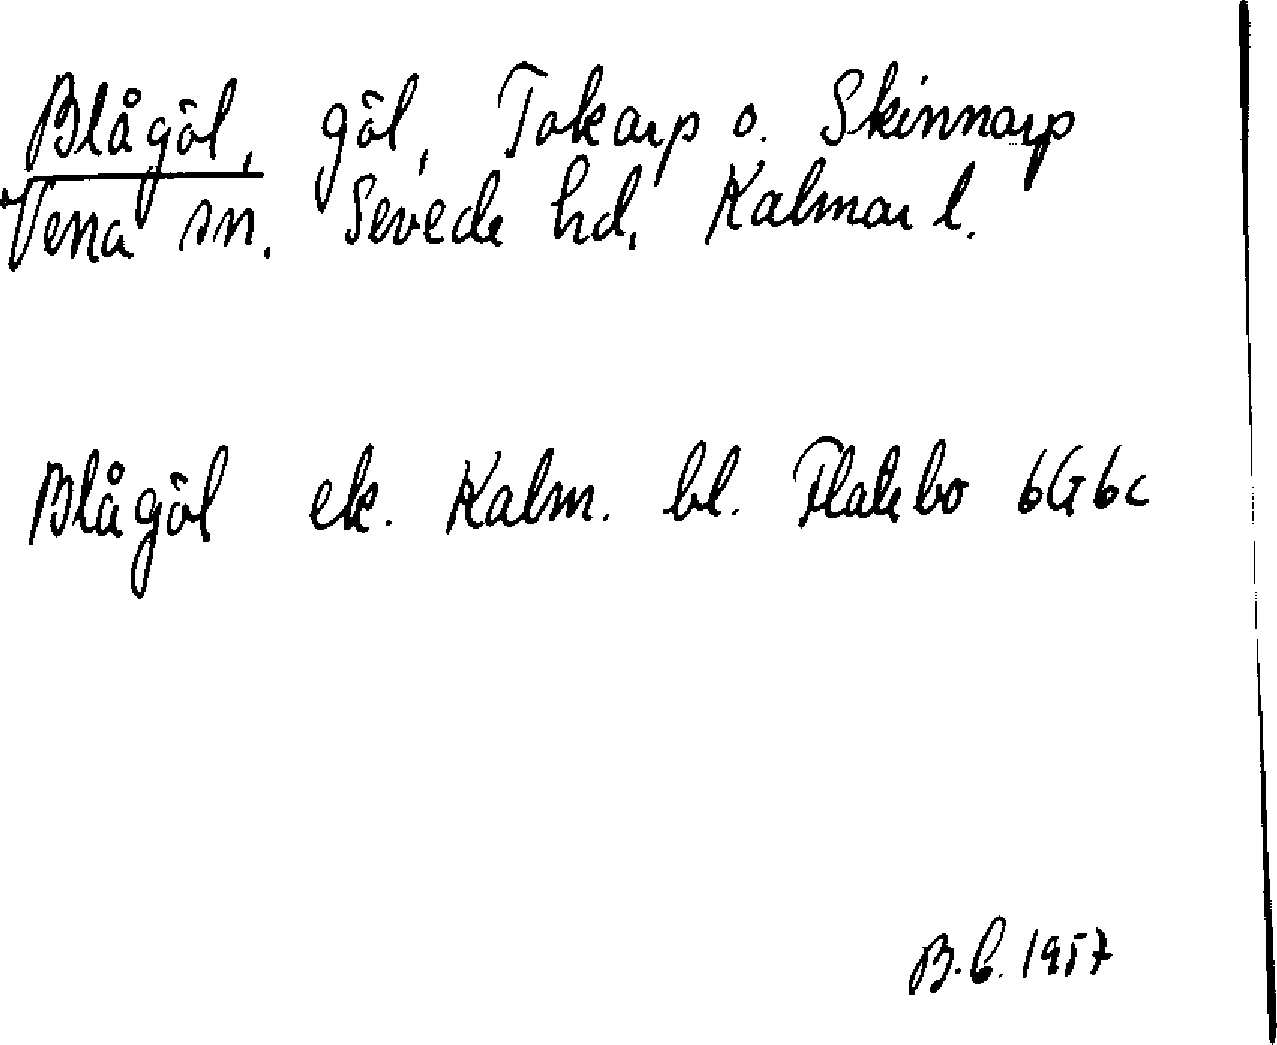 Blågöl, göl, Tokarp o. Skinnarp
Vena sn. Sevede hd, Kalmar l.
Blågöl ek. Kalm. bl. Flatebo 6G6c
B.C. 1957